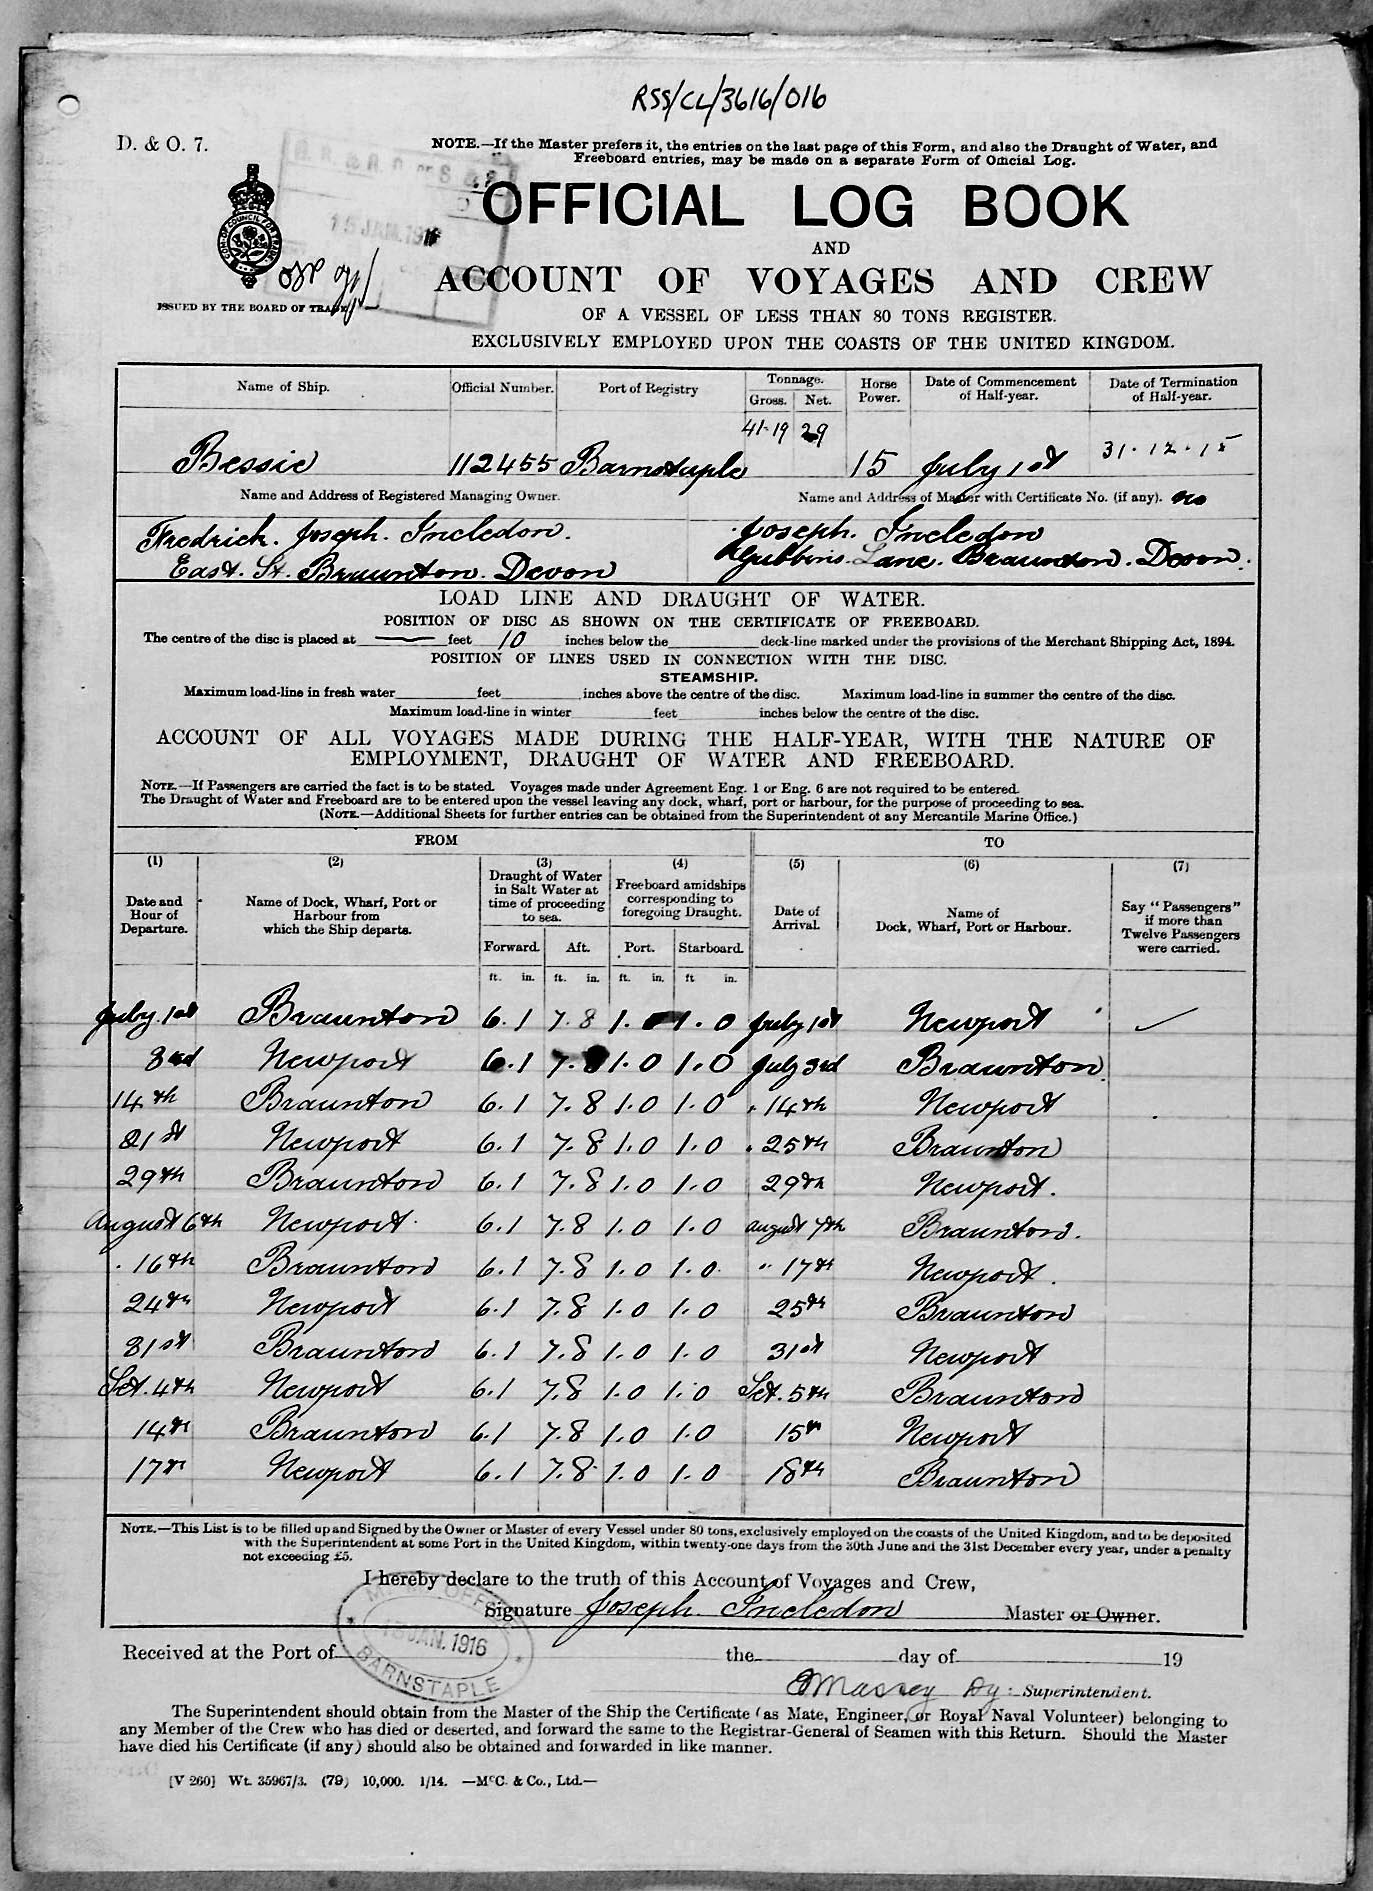 RSS/CL/3616/016
D. & O. 7.
NOTE.—If the Master prefers it, the entries on the last page of this Form, and also the Draught of Water, and
Freeboard entries, may be made on a separate Form of Official Log.
OFFICIAL LOG BOOK
15 JAN. 1916
AND
ACCOUNT OF VOYAGES AND CREW
ISSUED BY THE BOARD OF TRADE
OF A VESSEL OF LESS THAN 80 TONS REGISTER.
EXCLUSIVELY EMPLOYED UPON THE COASTS OF THE UNITED KINGDOM.
Name of Ship. Official Number. Port of Registry Tonnage. Gross. Net. Horse Power. Date of Commencement of Half-year. Date of Termination of Half-year.
41·19 29
Bessie 112455 Barnstaple 15 July 1st 31·12·15
Name and Address of Registered Managing Owner. Name and Address of Master with Certificate No. (if any). no
Fredrick. Joseph. Incledon. Joseph. Incledon
East. St. Braunton. Devon Gubbins. Lane. Braunton. Devon.
LOAD LINE AND DRAUGHT OF WATER.
POSITION OF DISC AS SHOWN ON THE CERTIFICATE OF FREEBOARD.
The centre of the disc is placed at — feet 10 inches below the deck-line marked under the provisions of the Merchant Shipping Act, 1894.
POSITION OF LINES USED IN CONNECTION WITH THE DISC.
STEAMSHIP.
Maximum load-line in fresh water feet inches above the centre of the disc. Maximum load-line in summer the centre of the disc.
Maximum load-line in winter feet inches below the centre of the disc.
ACCOUNT OF ALL VOYAGES MADE DURING THE HALF-YEAR, WITH THE NATURE OF
EMPLOYMENT, DRAUGHT OF WATER AND FREEBOARD.
NOTE.—If Passengers are carried the fact is to be stated. Voyages made under Agreement Eng. 1 or Eng. 6 are not required to be entered.
The Draught of Water and Freeboard are to be entered upon the vessel leaving any dock, wharf, port or harbour, for the purpose of proceeding to sea.
(NOTE.—Additional Sheets for further entries can be obtained from the Superintendent of any Mercantile Marine Office.)
FROM TO
(1) (2) (3) (4) (5) (6) (7)
Date and Hour of Departure. Name of Dock, Wharf, Port or Harbour from which the Ship departs. Draught of Water in Salt Water at time of proceeding to sea. Freeboard amidships corresponding to foregoing Draught. Date of Arrival. Name of Dock, Wharf, Port or Harbour. Say "Passengers" if more than Twelve Passengers were carried.
Forward. Aft. Port. Starboard.
ft. in. ft. in. ft. in. ft in.
July. 1st Braunton 6.1 7.8 1.0 1.0 July 1st Newport
3rd Newport 6.1 7.8 1.0 1.0 July 3rd Braunton
14th Braunton 6.1 7.8 1.0 1.0 14th Newport
21st Newport 6.1 7.8 1.0 1.0 25th Braunton
29th Braunton 6.1 7.8 1.0 1.0 29th Newport.
August 6th Newport 6.1 7.8 1.0 1.0 August 7th Braunton.
16th Braunton 6.1 7.8 1.0 1.0 " 17th Newport.
24th Newport 6.1 7.8 1.0 1.0 25th Braunton
31st Braunton 6.1 7.8 1.0 1.0 31st Newport
Set. 4th Newport 6.1 7.8 1.0 1.0 Set. 5th Braunton
14th Braunton 6.1 7.8 1.0 1.0 15th Newport
17th Newport 6.1 7.8 1.0 1.0 18th Braunton
NOTE.—This List is to be filled up and Signed by the Owner or Master of every Vessel under 80 tons, exclusively employed on the coasts of the United Kingdom, and to be deposited
with the Superintendent at some Port in the United Kingdom, within twenty-one days from the 30th June and the 31st December every year, under a penalty
not exceeding £5.
I hereby declare to the truth of this Account of Voyages and Crew,
Signature Joseph. Incledon Master or Owner.
JAN. 1916
BARNSTAPLE
Received at the Port of the day of 19
Massey Dy: Superintendent.
The Superintendent should obtain from the Master of the Ship the Certificate (as Mate, Engineer, or Royal Naval Volunteer) belonging to
any Member of the Crew who has died or deserted, and forward the same to the Registrar-General of Seamen with this Return. Should the Master
have died his Certificate (if any) should also be obtained and forwarded in like manner.
[V 260] Wt. 35967/3. (79) 10,000. 1/14. —McC. & Co., Ltd.—